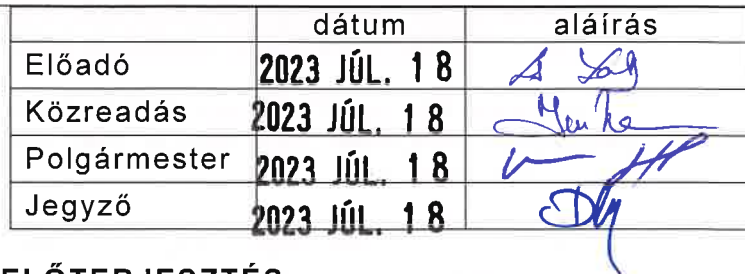 dátum aláírás
Előadó 2023 JÚL. 18
Közreadás 2023 JÚL. 18
Polgármester 2023 JÚL. 18
Jegyző 2023 JÚL. 18
ELŐTERJESZTÉS